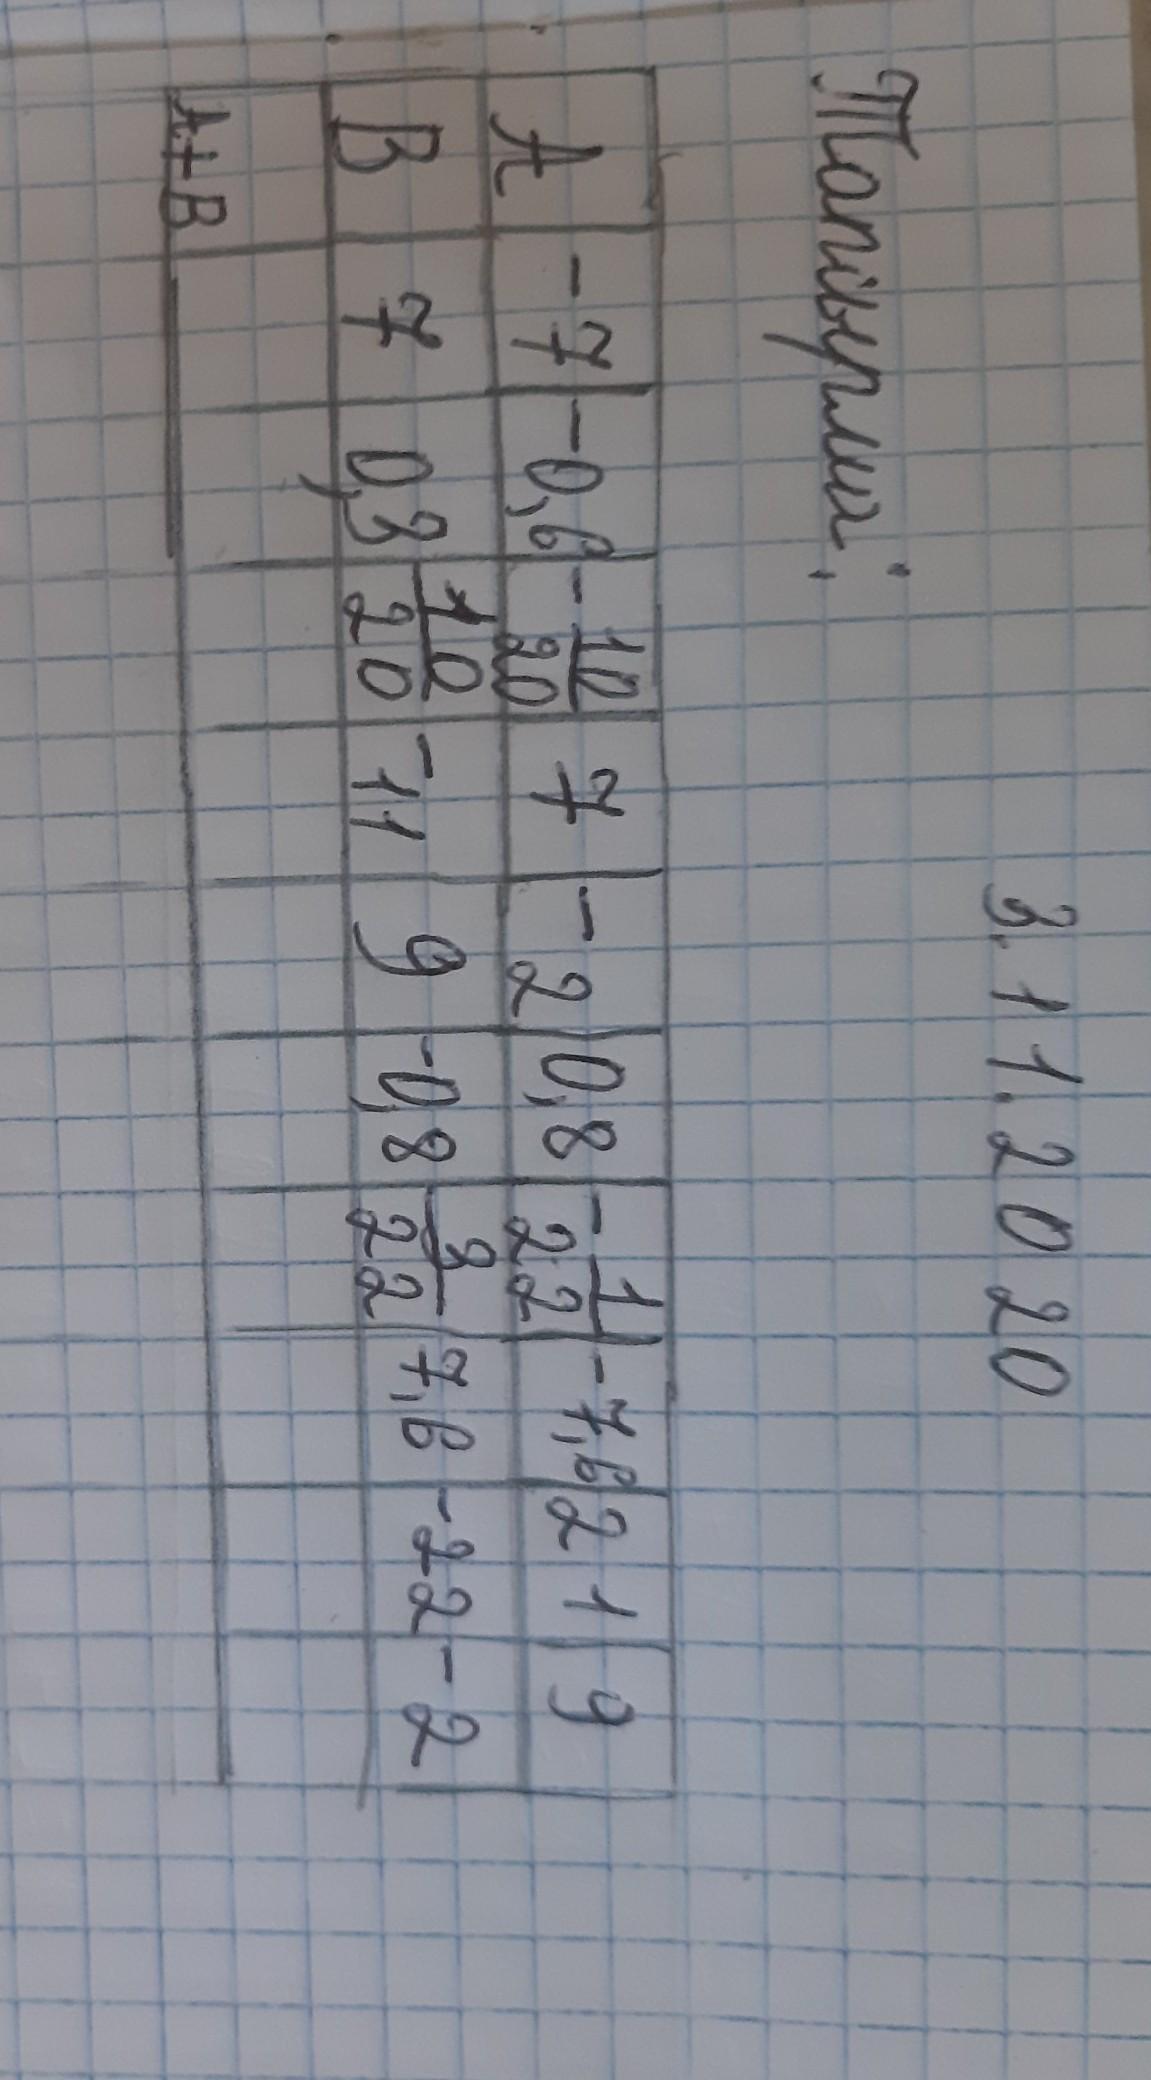 3.11.2020
Тапсырма:
A -7 -0,6 -10/20 7 -2 0,8 -1/22 -7,6 21 9
B 7 0,3 10/20 -11 9 -0,8 -3/22 7,6 -22 -2
A+B